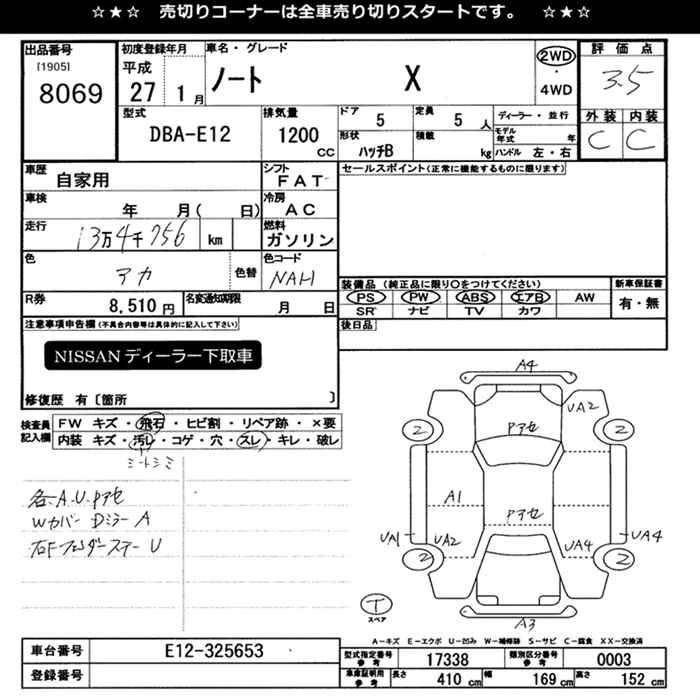 ☆★☆ 売切りコーナーは全車売り切りスタートです。 ☆★☆
出品番号 [1905] 8069
初度登録年月 平成 27 1月
車名・グレード ノート X
2WD・4WD
評価点 3.5
外装 C 内装 C
型式 DBA-E12
排気量 1200 CC
ドア 5 定員 5人
形状 ハッチB 積載 kg
ディーラー・並行
モデル年式 年
ハンドル 左・右
車歴 自家用
シフト FAT
セールスポイント(正常に機能するものに限ります)
車検 年 月( 日)
冷房 AC
走行 13万4千756 km
燃料 ガソリン
色 アカ 色替
色コード NAH
装備品 (純正品に限り○をつけてください)
PS PW ABS エアB AW
SR ナビ TV カワ
新車保証書 有・無
R券 8,510円
名変通知期限 月 日
後日品
注意事項申告欄(不具合内容等は具体的に記入して下さい)
NISSANディーラー下取車
修復歴 有 [箇所 ]
検査員記入欄
FW キズ・飛石・ヒビ割・リペア跡・×要
内装 キズ・汚レ・コゲ・穴・スレ・キレ・破レ
シートシミ
各.A.U.Pアセ
Wカバー Dミラー A
右Fフェンダーステー U
A4
UA2
2 2
Pアセ
A1
Pアセ
UA1 UA2 UA4 UA4
2 2
A3
T スペア
A-キズ E-エクボ U-凹み W-補修跡 S-サビ C-腐食 XX-交換済
車台番号 E12-325653
登録番号
型式指定番号 参考 17338
類別区分番号 参考 0003
車庫証明用 参考 長さ 410 cm 幅 169 cm 高さ 152 cm